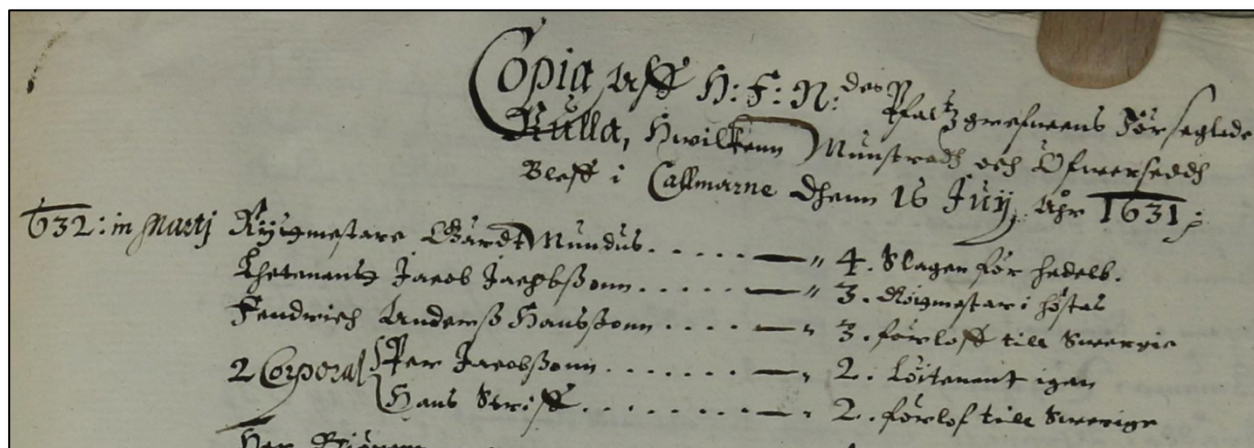 Copia aff H: F: N: des Pfaltzgrefweens Förseglade
Rulla, Hwilkenn Munstradh och Öfwersedh
Bleff i Callmarne dhenn 16 Juny, Åhr 1631;
632: in Martj Rytgmestare Gärdt Mundus. . . . . . — " 4. Slagen för hedelb.
Jacob Jacobßonn . . . . . — " 3. Rögmestar i höstas
Fendrich Anderß Hansßonn . . . . — " 3. förloff till Swergie
2 Corporal Per Jacobßonn . . . . . . . — " 2. Löitenant igen
Hans Striff . . . . . . . . — " 2. förlof till Swerige